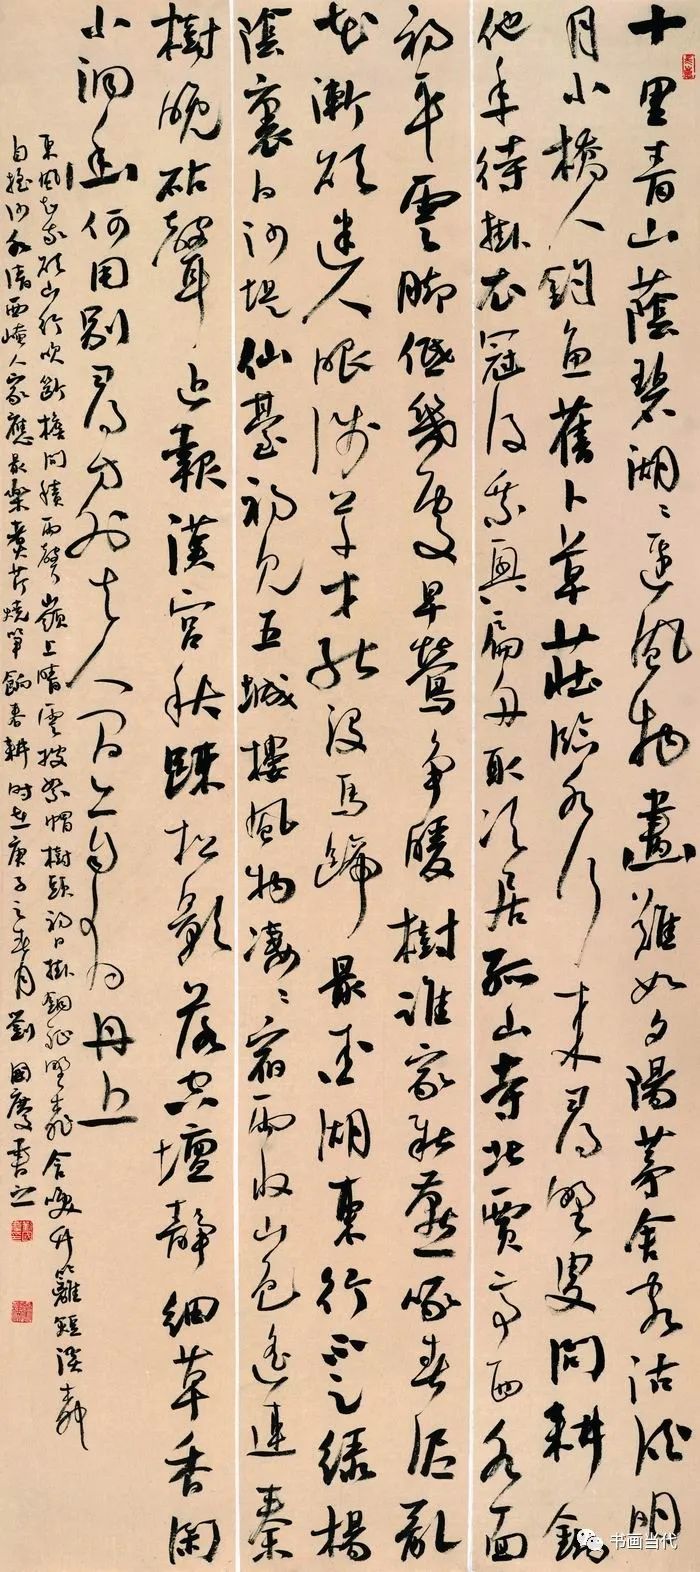 十里青山蔭碧湖湖邊風物畫難如夕陽茅舍客沽酒明
月小橋人釣魚舊卜草莊臨水竹來尋野叟問耕鋤
他年待掛衣冠後乘興扁舟取次居孤山寺北賈亭西水面
初平雲腳低幾處早鶯爭暖樹誰家新燕啄春泥亂
花漸欲迷人眼淺草才能沒馬蹄最愛湖東行不足綠楊
陰裏白沙堤仙臺初見五城樓風物淒淒宿雨收山色遙連秦
樹晚砧聲近報漢宮秋疎松影落空壇靜細草香閑
小洞幽何用別尋方外去人間亦自有丹丘
東風知我欲山行吹斷檐間積雨聲嶺上晴雲披絮帽樹頭初日掛銅鉦野桃含笑竹籬短溪柳
自搖沙水清西崦人家應最樂煑芹燒笋餉春耕時在庚子之春月劉國慶書之
书画当代